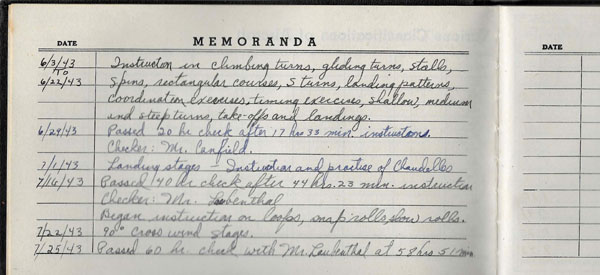 DATE MEMORANDA DATE
6/3/43 Instruction in climbing turns, gliding turns, stalls,
TO
6/22/43 Spins, rectangular courses, S turns, landing patterns,
coordination exercises, timing exercises, shallow, medium
and steep turns, take-offs and landings.
6/29/43 Passed 20 hr check after 17 hrs 33 min. instructions.
Checker: Mr. Canfield.
7/1/43 Landing stages - Instruction and practise of Chandelles
7/16/43 Passed 40 hr check after 44 hrs. 23 min. instruction
Checker: Mr. Lubenthal
Began instruction on loops, snap rolls, slow rolls.
7/22/43 90° Cross wind stages.
7/25/43 Passed 60 hr. check with Mr. at 58 hrs 51 min